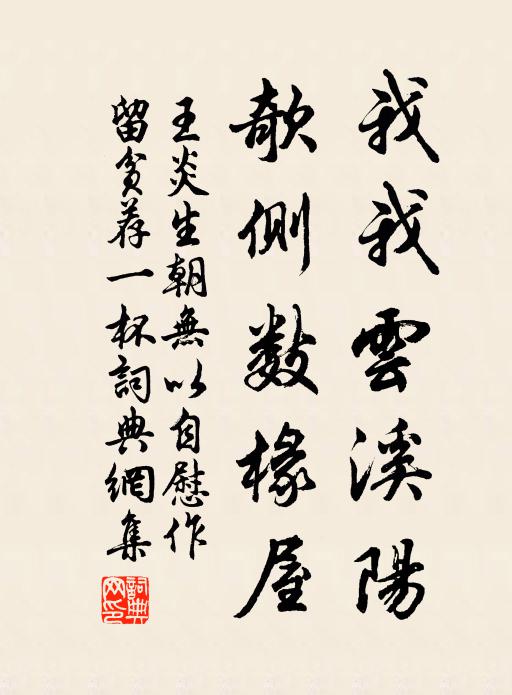 我我雲溪陽
欹側數椽屋
王炎生朝無以自慰作
留貧荐一杯詞典網集
詞典網印